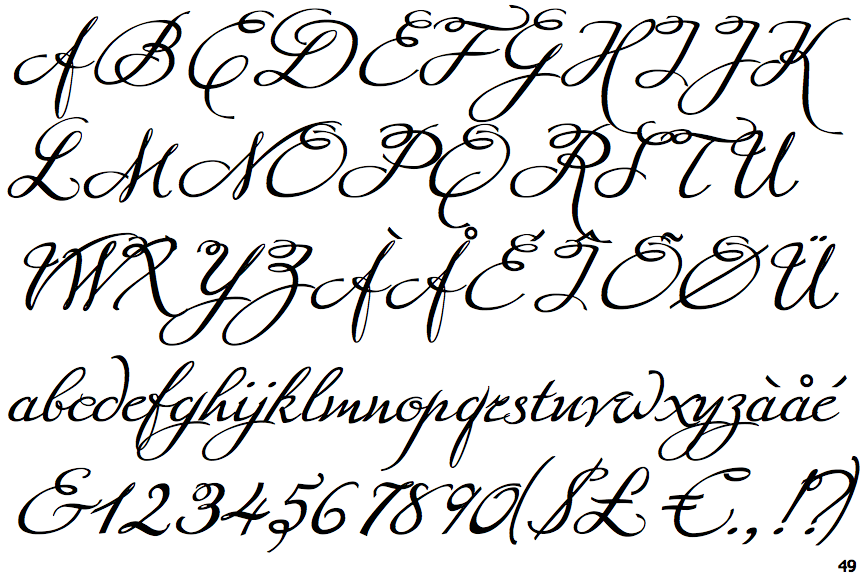 ABCDEFGHIJK
LMNOPQRSTU
VWXYZÀÅÉÎÕØÜ
abcdefghijklmnopqrstuvwxyzàåé
&1234567890($£€.,!?)
49